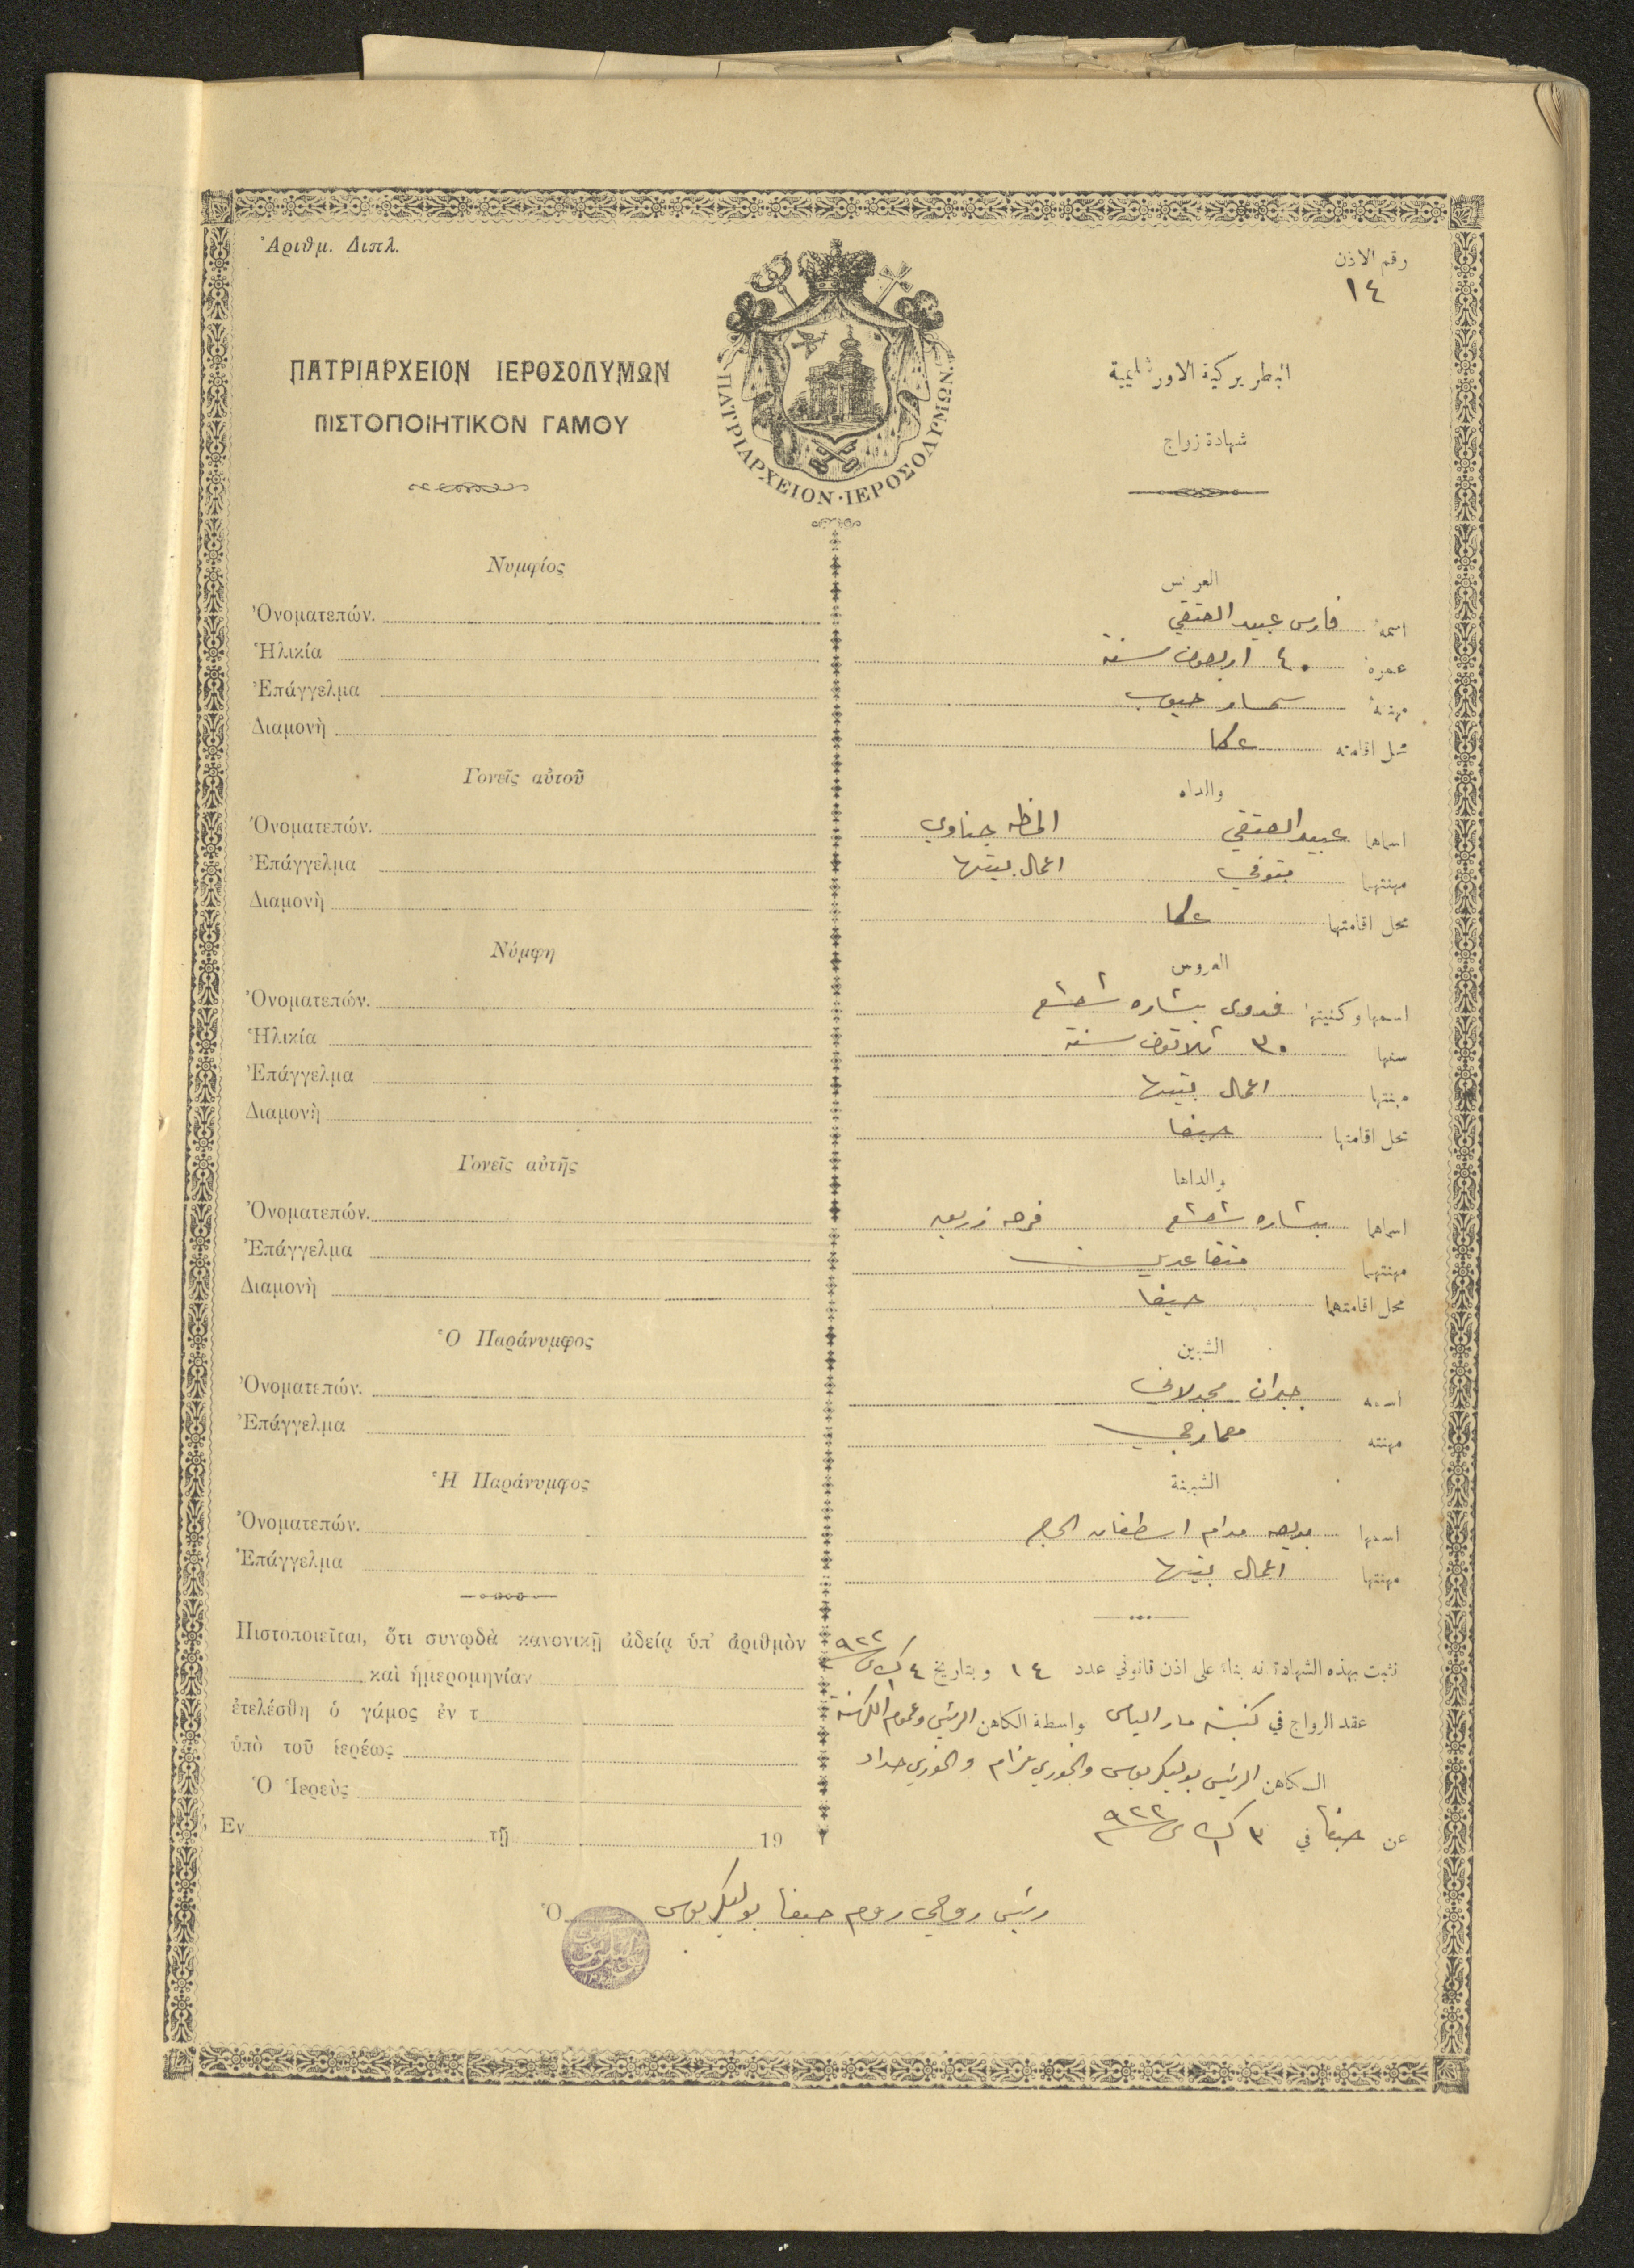 Ἀριθμ. Διπλ.
رقم الاذن
١٤
ΠΑΤΡΙΑΡΧΕΙΟΝ ΙΕΡΟΣΟΛΥΜΩΝ
ΠΙΣΤΟΠΟΙΗΤΙΚΟΝ ΓΑΜΟΥ
ΠΑΤΡΙΑΡΧΕΙΟΝ·ΙΕΡΟΣΟΛΥΜΩΝ.
البطريركية الاورشليمية
شهادة زواج
Νυμφίος
Ὀνοματεπών.
Ἡλικία
Ἐπάγγελμα
Διαμονὴ
Γονεῖς αὐτοῦ
Ὀνοματεπών.
Ἐπάγγελμα
Διαμονὴ
Νύμφη
Ὀνοματεπών.
Ἡλικία
Ἐπάγγελμα
Διαμονὴ
Γονεῖς αὐτῆς
Ὀνοματεπών.
Ἐπάγγελμα
Διαμονὴ
Ὁ Παράνυμφος
Ὀνοματεπών.
Ἐπάγγελμα
Ἡ Παράνυμφος
Ὀνοματεπών.
Ἐπάγγελμα
Πιστοποιεῖται, ὅτι συνῳδὰ κανονικῇ ἀδείᾳ ὑπ' ἀριθμὸν
καὶ ἡμερομηνίαν
ἐτελέσθη ὁ γάμος ἐν τ
ὑπὸ τοῦ ἱερέως
Ὁ Ἱερεὺς
Ἐν τῇ 19
العريس
اسمه فارس عبيد
عمره ٤٠ اربعون سنة
مهنته سمسار حبوب
محل اقامته عكا
والداه
اسماهما عبيد
مهنتهما متوفي اعمال بيتها
محل اقامتهما عكا
العروس
اسمها وكنيتها فدوى بشاره شعشع
سنها ٣٠ ثلاثون سنة
مهنتها اعمال بيتها
محل اقامتها حيفا
والداها
اسماهما بشاره شعشع فرحه
مهنتهما متقاعدين
محل اقامتهما حيفا
الشبين
اسمه جبران مجدلاني
مهنته معمارجي
الشبينة
اسمها مدام اسطفان
مهنتها اعمال بيتها
نثبت بهذه الشهادة انه بناء على اذن قانوني عدد ١٤ وبتاريخ ٤ ك٢ ٩٢٢
عقد الزواج في كنيسة مار الياس واسطة الكاهن الرئيس وعموم الكهنة
الكاهن الرئيس بوليكربوس والخوري والخوري حداد
عن حيفا في ٣ ك٢ ٩٢٢
Ὁ رئيس روحي روم حيفا بوليكربوس